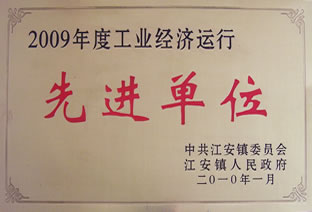 2009年度工业经济运行
先进单位
中共江安镇委员会
江安镇人民政府
二〇一〇年一月